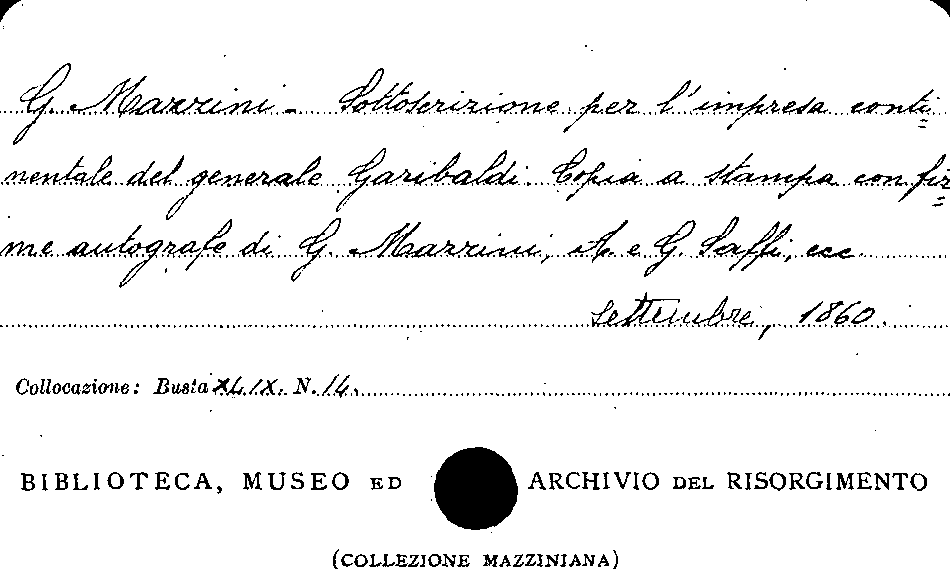 G. Mazzini - Sottoscrizione per l'impresa conti=
nentale del generale Garibaldi. Copia a stampa con fir=
me autografe di G. Mazzini, A. e G. Saffi, ecc.
Settembre, 1860.
Collocazione: Busta XLIX. N. 14.
BIBLIOTECA, MUSEO ED ARCHIVIO DEL RISORGIMENTO
(COLLEZIONE MAZZINIANA)